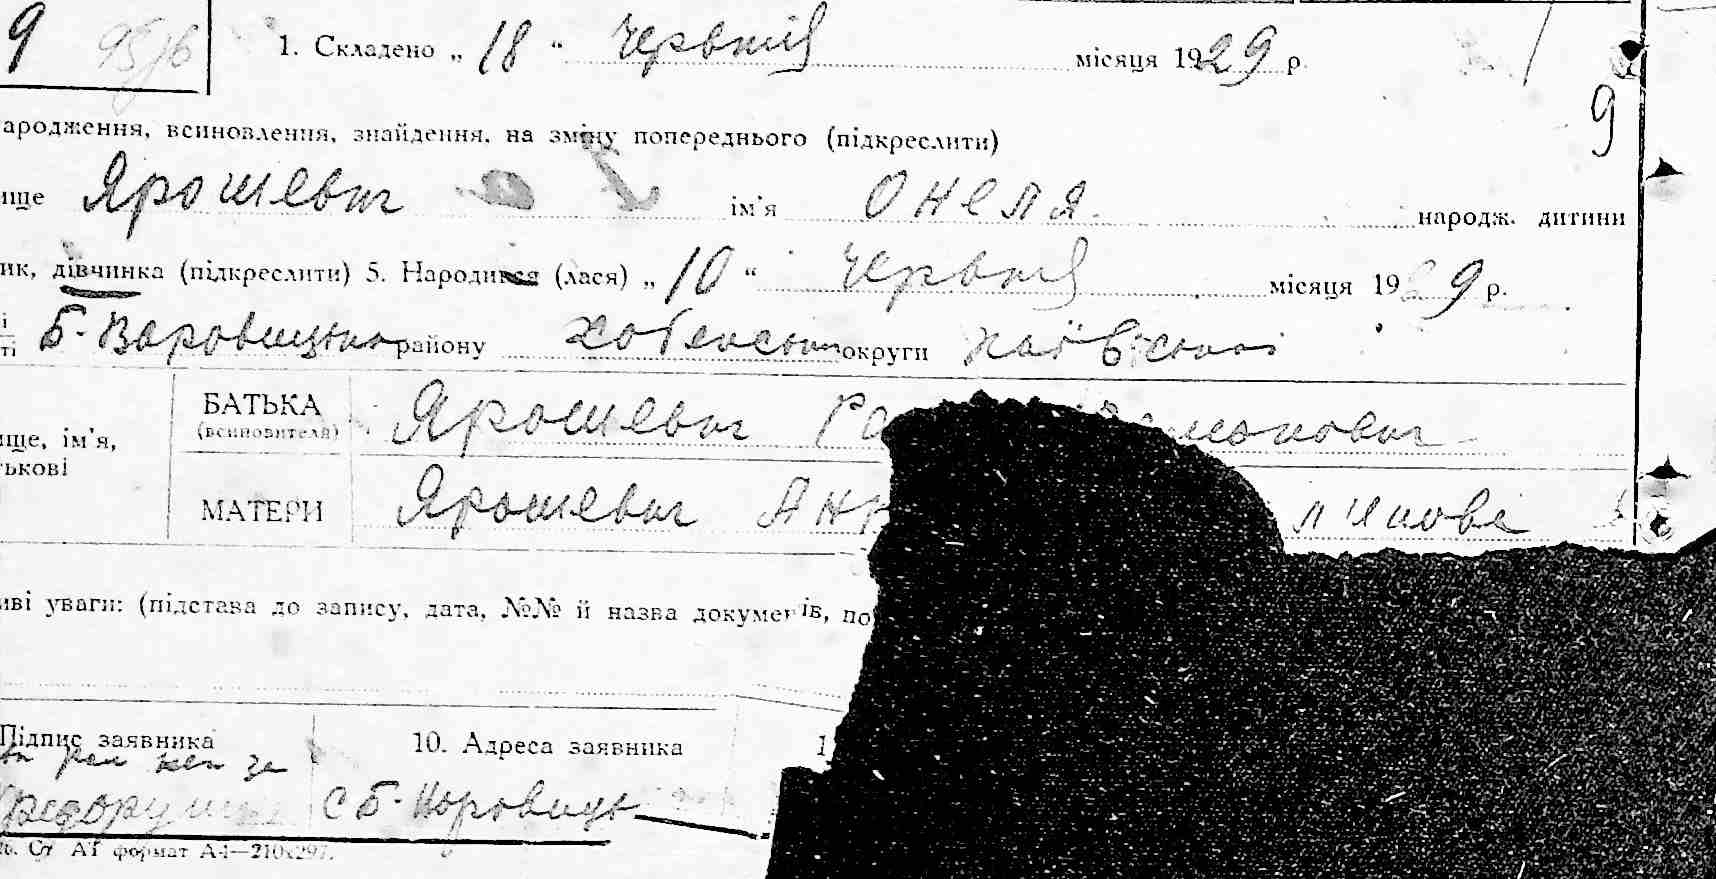 9 95/6 1. Складено „ 18 “ червня місяця 1929 р.
9
ародження, всиновлення, знайдення, на зміну попереднього (підкреслити)
ище Ярошевич ім'я Онеля народж. дитини
ик, дівчинка (підкреслити) 5. Народився (лася) „ 10 “ червня місяця 1929 р.
і
ті Б-Воровицько району Хобенськ округи Київської
БАТЬКА Ярошевич
(всиновителя)
ище, ім'я,
ькові
МАТЕРИ Ярошевич Анн
иві уваги: (підстава до запису, дата, №№ й назва документів, по
Підпис заявника 10. Адреса заявника 1
с Б-Воровици
формат А4—210х297.